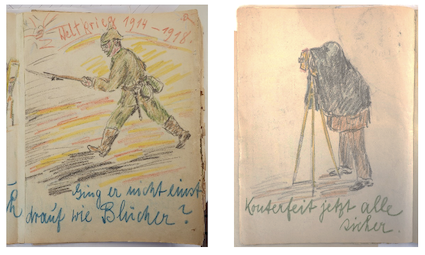 Weltkrieg 1914–1918.
Ging er nicht einst
drauf wie Blücher?
Konterfeit jetzt alle
sicher.